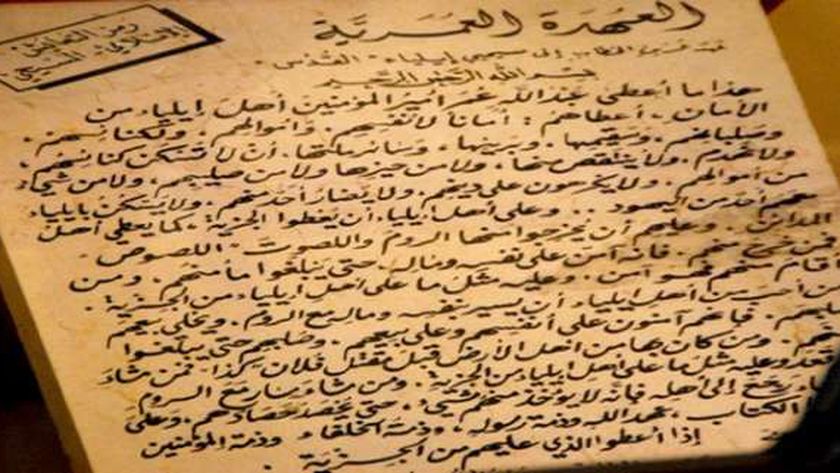 العهدة العمرية
رمز التعايش
الإسلامي المسيحي
من عمر بن الخطاب إلى مسيحيي إيلياء "القدس"
بسم الله الرحمن الرحيم
هذا ما أعطى عبد الله عمر أمير المؤمنين أهل إيلياء من
الأمان، أعطاهم: أمانا لأنفسهم. وأموالهم. ولكنائسهم.
وصلبانهم. وسقيمها. وبريئها. وسائر ملتها. أن لا تسكن كنائسهم.
ولا تهدم. ولا ينتقص منها. ولا من حيزها ولا من صليبهم. ولا من شيء
من أموالهم. ولا يكرهون على دينهم. ولا يضار أحد منهم. ولا يسكن بايلياء
معهم أحد من اليهود.. وعلى أهل إيلياء أن يعطوا الجزية. كما يعطي أهل
المدائن. وعليهم أن يخرجوا منها الروم واللصوت - اللصوص -
فمن خرج منهم. فإنه آمن على نفسه وماله. حتى يبلغوا مأمنهم. ومن
أقام منهم فهو آمن. وعليه مثل ما على أهل إيلياء من الجزية.
ومن أحب من أهل إيلياء أن يسير بنفسه وماله مع الروم. ويخلي بيعهم
وصلبهم. فإنهم آمنون على أنفسهم وعلى بيعهم. وصلبهم حتى يبلغوا
مأمنهم. ومن كان بها من أهل الأرض قبل مقتل فلان كذا. فمن شاء
قعد وعليه مثل ما على أهل إيلياء من الجزية. ومن شاء سار مع الروم
شاء رجع إلى أهله فإنه لا يؤخذ منهم شيء. حتى يحصد حصادهم. وعلى
الكتاب. عهد الله وذمة رسوله. وذمة الخلفاء وذمة المؤمنين
إذا أعطوا الذي عليهم من الجزية.